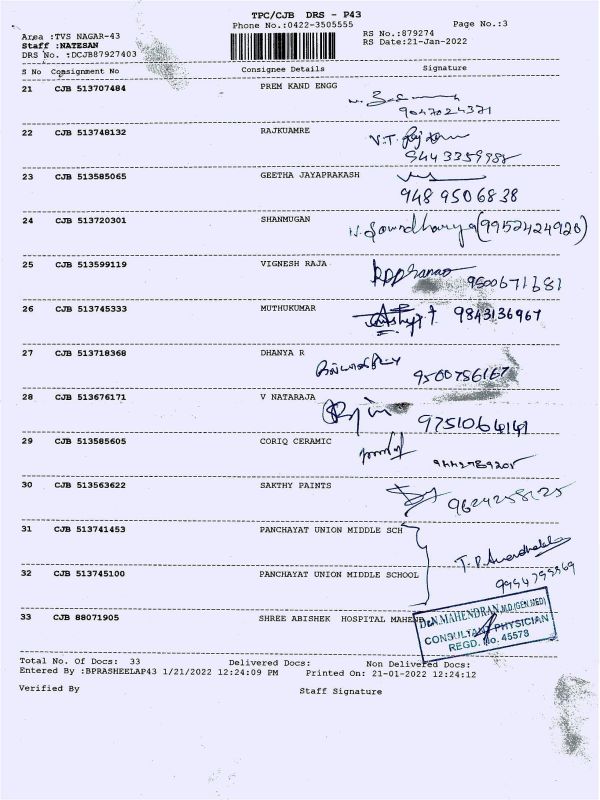 TPC/CJB DRS - P43
Phone No.:0422-3505555
Page No.:3
Area :TVS NAGAR-43
RS No.:879274
Staff :NATESAN
RS Date:21-Jan-2022
DRS No. :DCJB87927403
S No Consignment No Consignee Details Signature
21 CJB 513707484 PREM KAND ENGG
9047024371
22 CJB 513748132 RAJKUAMRE
V.T.
23 CJB 513585065 GEETHA JAYAPRAKASH
948 9506838
24 CJB 513720301 SHANMUGAN
N. Sowndharya (9952424920)
25 CJB 513599119 VIGNESH RAJA
9500671681
26 CJB 513745333 MUTHUKUMAR
9843136967
27 CJB 513718368 DHANYA R
9500756167
28 CJB 513676171 V NATARAJA
29 CJB 513585605 CORIQ CERAMIC
30 CJB 513563622 SAKTHY PAINTS
31 CJB 513741453 PANCHAYAT UNION MIDDLE SCH
32 CJB 513745100 PANCHAYAT UNION MIDDLE SCHOOL
33 CJB 88071905 SHREE ABISHEK HOSPITAL MAHEND
Dr.N.MAHENDRAN, M.D.(GEN.MED)
CONSULTANT PHYSICIAN
REGD. No. 45578
Total No. Of Docs: 33 Delivered Docs: Non Delivered Docs:
Entered By :BPRASHEELAP43 1/21/2022 12:24:09 PM Printed On: 21-01-2022 12:24:12
Verified By Staff Signature